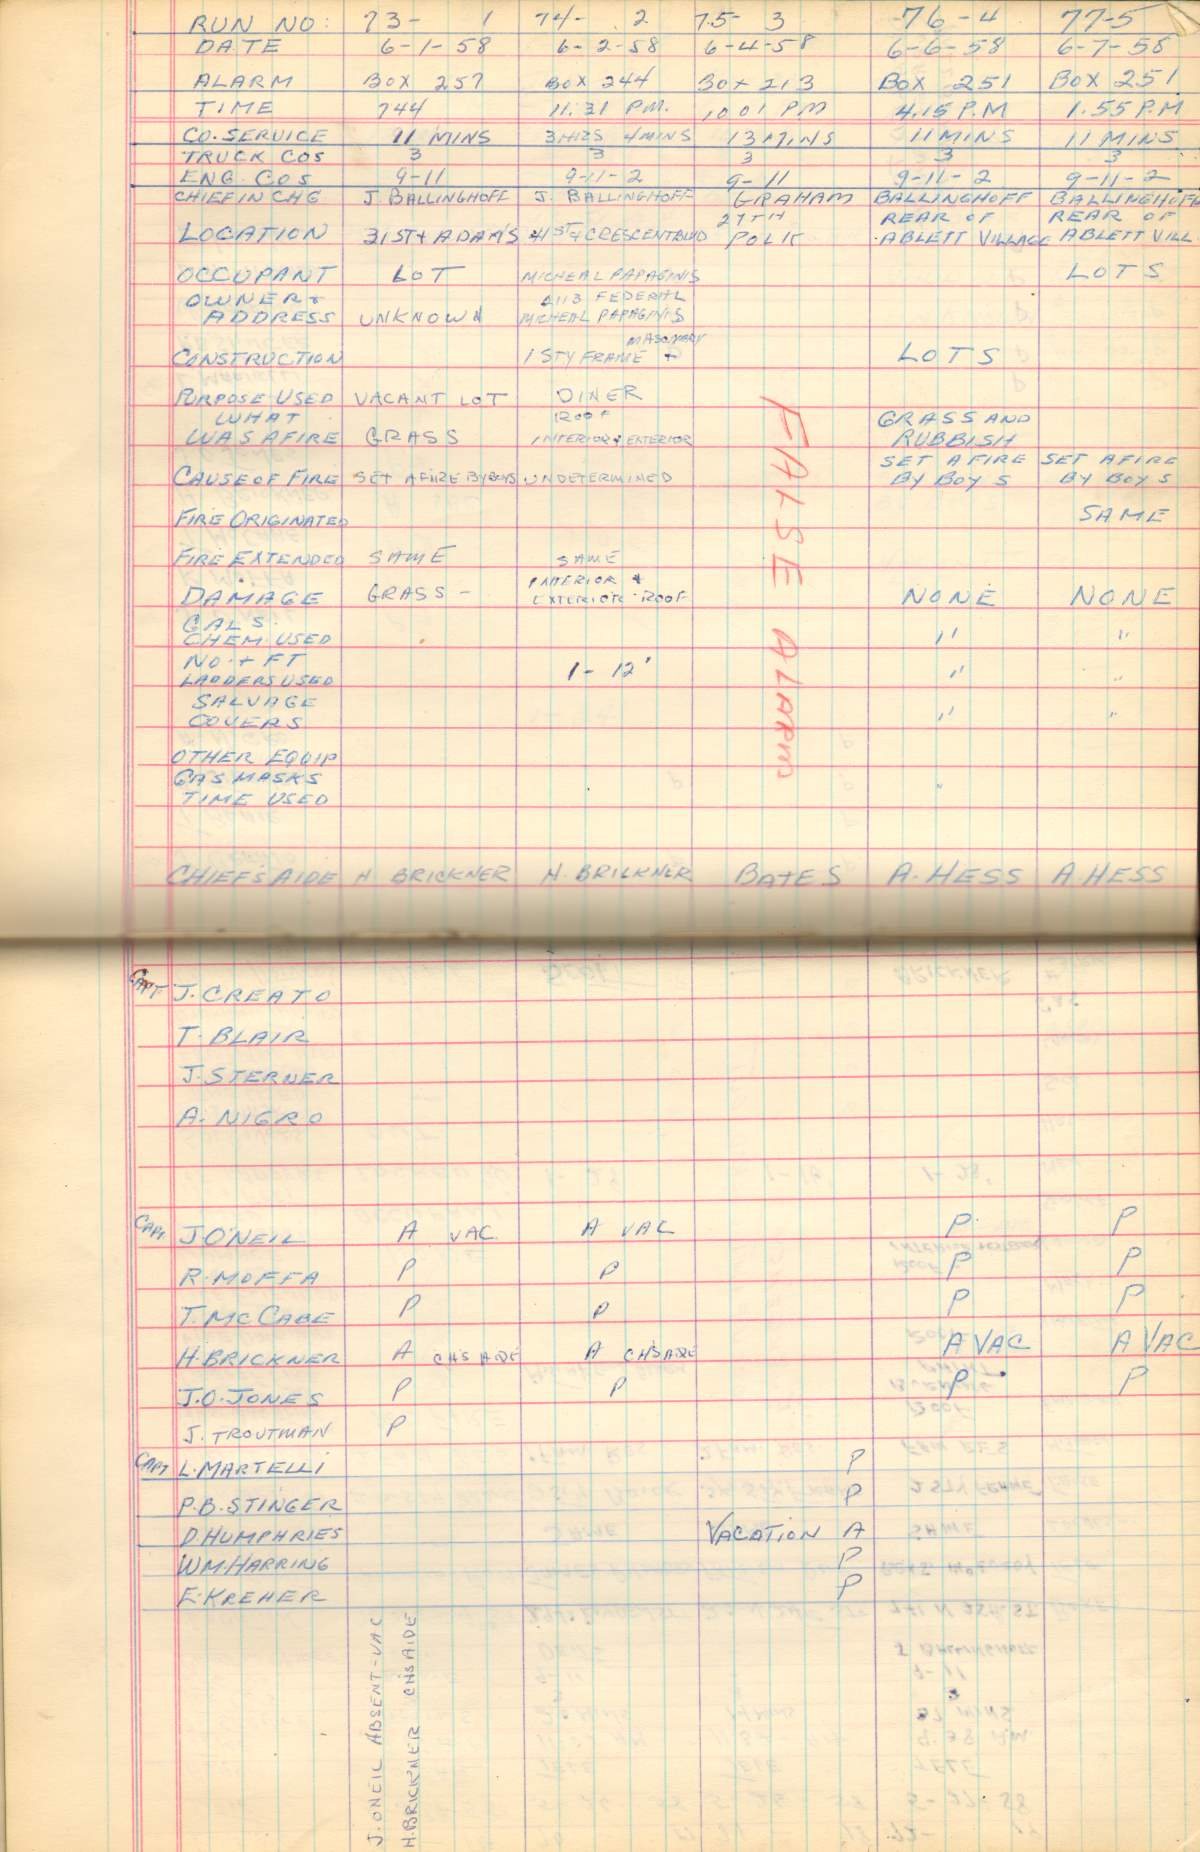 RUN NO: 73- 1 74- 2 75- 3 76-4 77-5
DATE 6-1-58 6-2-58 6-4-58 6-6-58 6-7-58
ALARM BOX 257 BOX 244 BOX 213 BOX 251 BOX 251
TIME 744 11.31 P.M. 10 01 PM 4.15 P.M 1.55 P.M
CO. SERVICE 11 MINS 3 HRS 4 MINS 13 MINS 11 MINS 11 MINS
TRUCK COS 3 3 3 3 3
ENG. COS 9-11 9-11-2 9-11 9-11-2 9-11-2
CHIEF IN CHG J. BALLINGHOFF J. BALLINGHOFF GRAHAM BALLINGHOFF BALLINGHOFF
27TH REAR OF REAR OF
LOCATION 31ST + ADAM'S 41ST + CRESCENT BLVD POLK ABLETT VILLAGE ABLETT VILL.
OCCUPANT LOT MICHEAL PAPAGINIS LOTS
OWNER + 2113 FEDERAL
ADDRESS UNKNOWN MICHEAL PAPAGINIS
MASONARY
CONSTRUCTION 1 STY FRAME + LOTS
PURPOSE USED VACANT LOT DINER
WHAT ROOF GRASS AND
WAS AFIRE GRASS INTERIOR + EXTERIOR RUBBISH
SET AFIRE SET AFIRE
CAUSE OF FIRE SET AFIRE BY BOYS UNDETERMINED BY BOYS BY BOYS
FIRE ORIGINATED SAME
FIRE EXTENDED SAME SAME
INTERIOR +
DAMAGE GRASS - EXTERIOR - ROOF NONE NONE
GALS.
CHEM. USED " "
NO. + FT
LADDERS USED 1- 12' " "
SALVAGE
COVERS " "
OTHER EQUIP
GAS MASKS "
TIME USED
FALSE ALARM
CHIEF'S AIDE H BRICKNER H. BRICKNER BATES A. HESS A. HESS
CAPT J. CREATO
T. BLAIR
J. STERNER
A. NIGRO
CAPT. J. O'NEIL A VAC. A VAC P P
R. MOFFA P P P P
T. MC CABE P P P P
H. BRICKNER A CH'S AIDE A CH'S AIDE A VAC A VAC
J. O. JONES P P P P
J. TROUTMAN P
CAPT L. MARTELLI P
P. B. STINGER P
D. HUMPHRIES VACATION A
WM. HARRING P
E. KREHER P
J. ONEIL ABSENT-VAC
H. BRICKNER CH'S AIDE